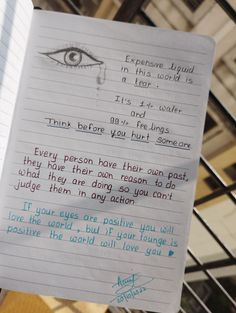 Expensive liquid
in this world is
a tear.
It's 1% water
and
99% feelings
Think before you hurt someone
Every person have their own past,
they have their own reason to do
what they are doing so you can't
judge them in any action
If your eyes are positive you will
love the world, but if your lounge is
positive the world will love you